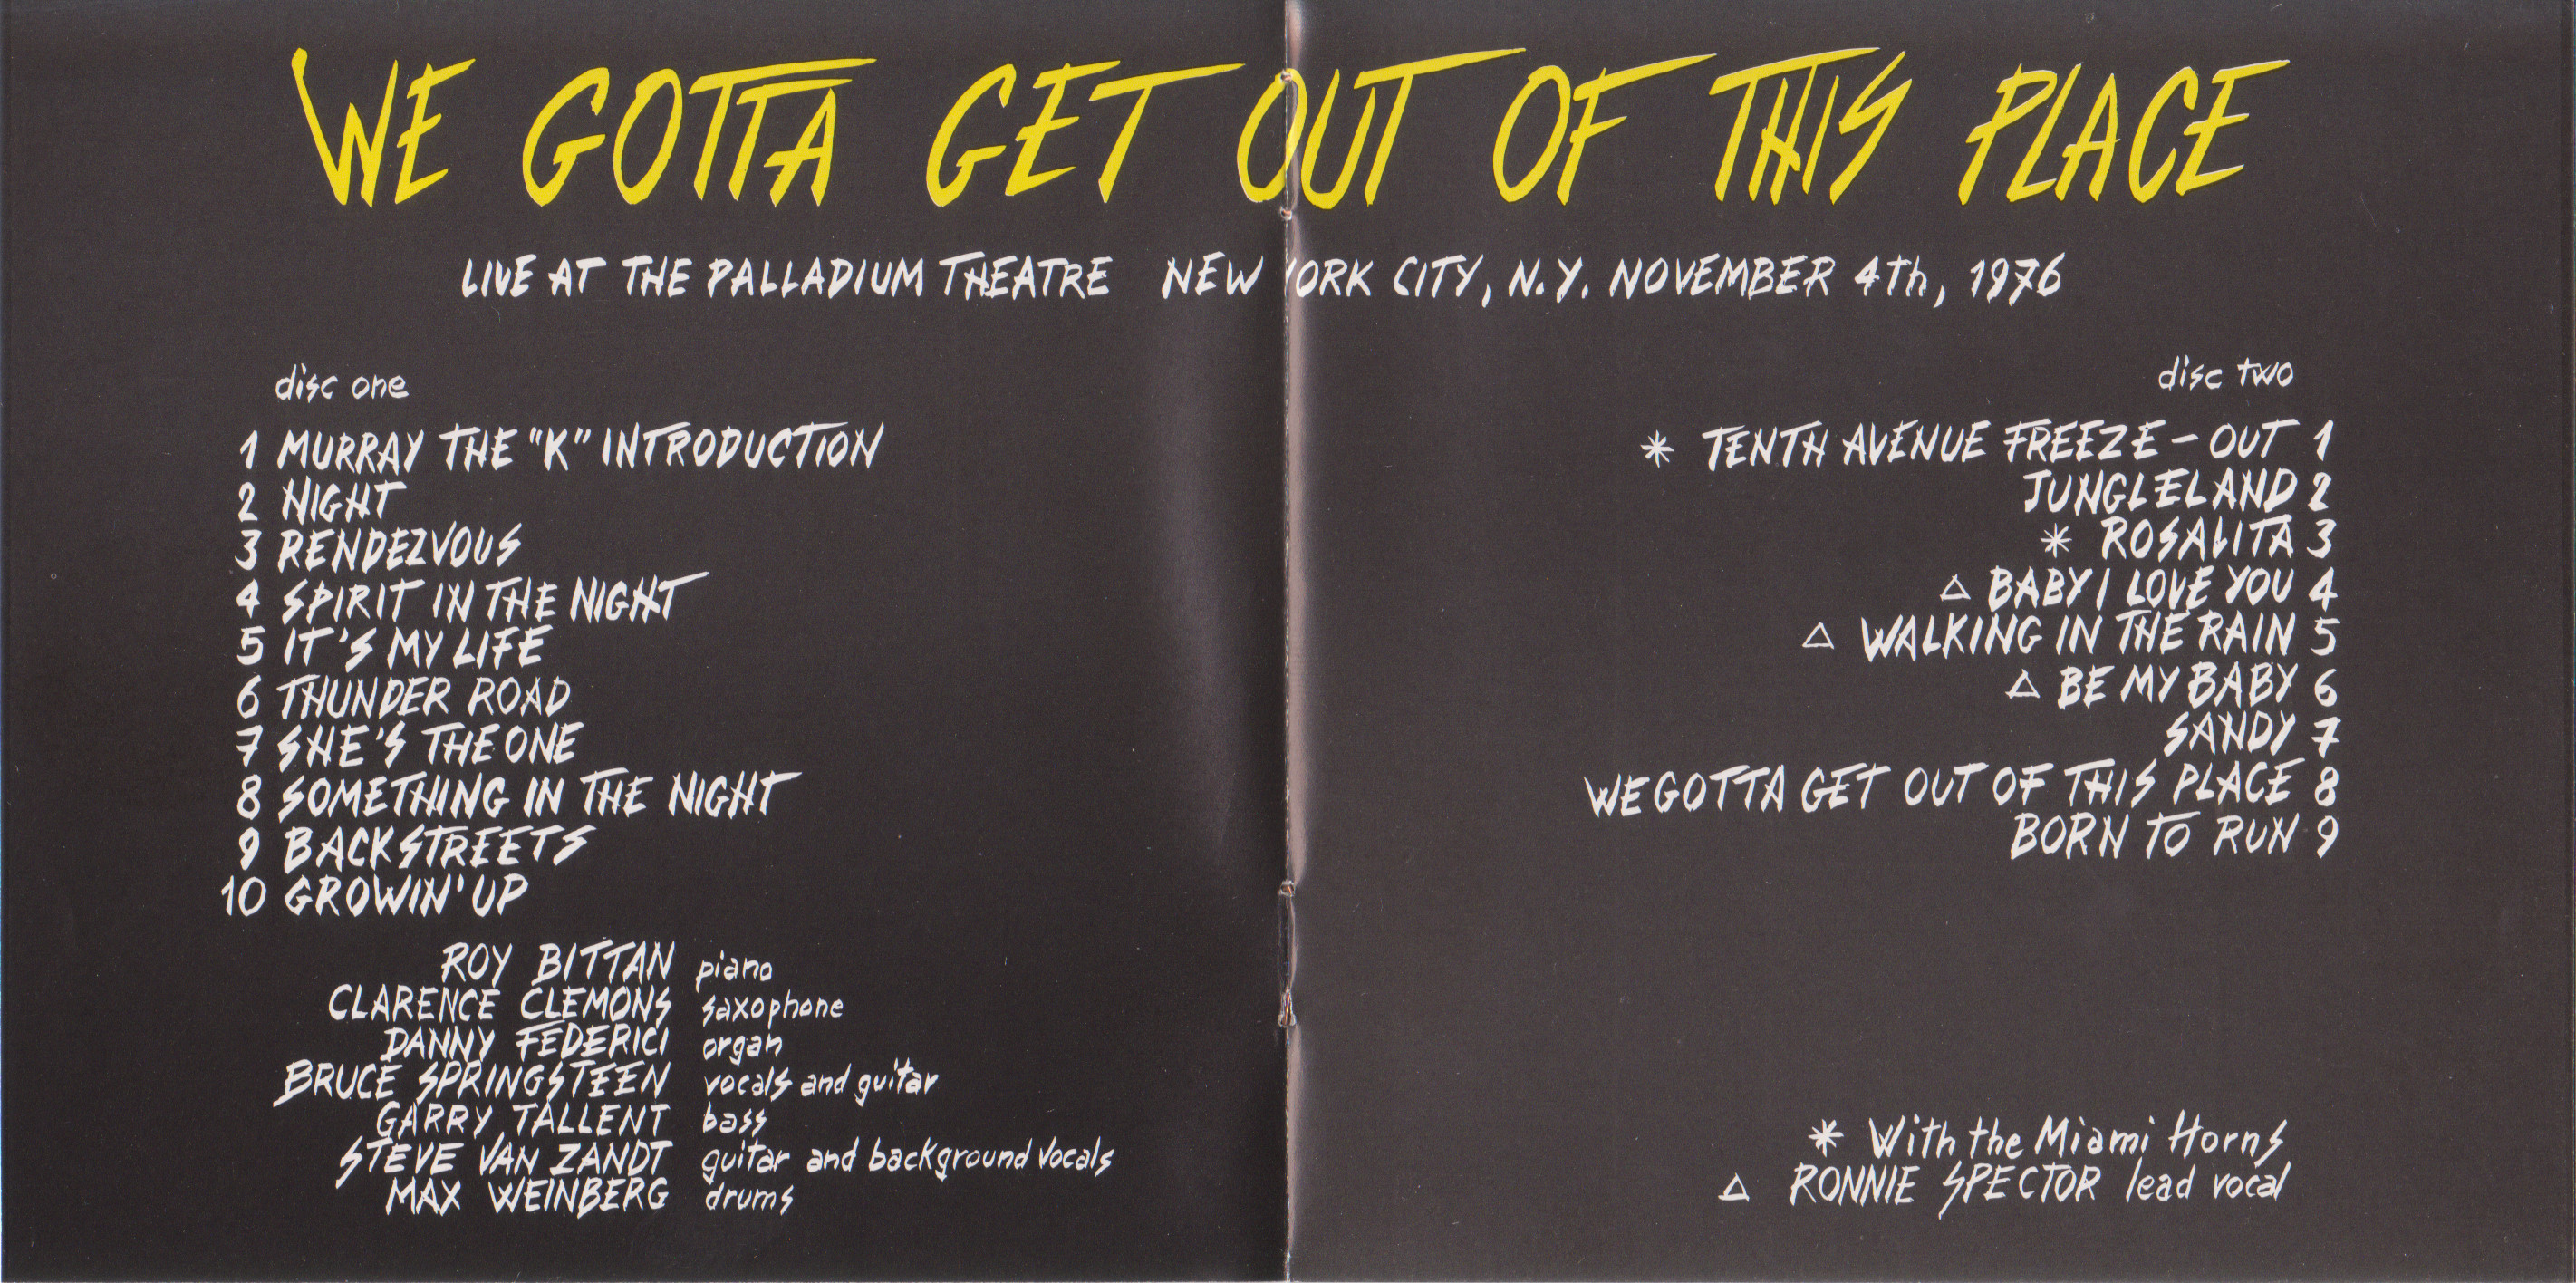 WE GOTTA GET OUT OF THIS PLACE
LIVE AT THE PALLADIUM THEATRE NEW YORK CITY, N.Y. NOVEMBER 4th, 1976
disc one
1 MURRAY THE "K" INTRODUCTION
2 NIGHT
3 RENDEZVOUS
4 SPIRIT IN THE NIGHT
5 IT'S MY LIFE
6 THUNDER ROAD
7 SHE'S THE ONE
8 SOMETHING IN THE NIGHT
9 BACKSTREETS
10 GROWIN' UP
ROY BITTAN piano
CLARENCE CLEMONS saxophone
DANNY FEDERICI organ
BRUCE SPRINGSTEEN vocals and guitar
GARRY TALLENT bass
STEVE VAN ZANDT guitar and background vocals
MAX WEINBERG drums
disc two
* TENTH AVENUE FREEZE-OUT 1
JUNGLELAND 2
* ROSALITA 3
△ BABY I LOVE YOU 4
△ WALKING IN THE RAIN 5
△ BE MY BABY 6
SANDY 7
WE GOTTA GET OUT OF THIS PLACE 8
BORN TO RUN 9
* With the Miami Horns
△ RONNIE SPECTOR lead vocal